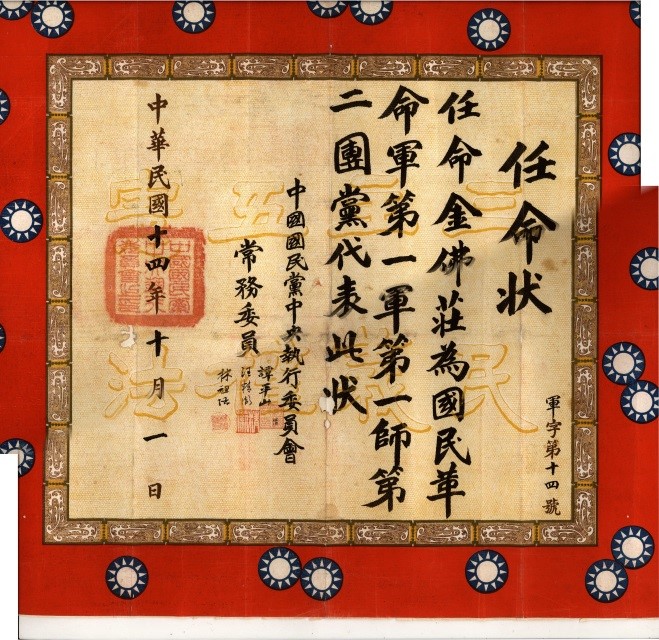 任命状
任命金佛莊為國民革
命軍第一軍第一師第
二團黨代表此状
中國國民黨中央執行委員會
常務委員
譚平山
汪精衛
林祖涵
中華民國十四年十月一日
軍字第十四號
三民
五